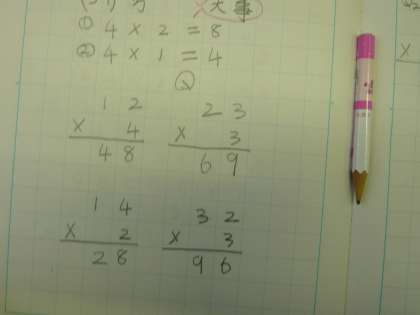 大事
① 4 × 2 = 8
② 4 × 1 = 4
Q
12
× 4
48
23
× 3
69
14
× 2
28
32
× 3
96
×